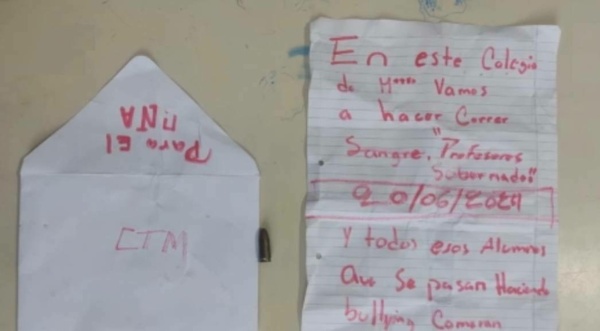 Para El
DNA
CTM
En este Colegio
de M**** Vamos
a hacer Correr
Sangre, "Profesores
Subornados"
20/06/2024
Y todos esos Alumnos
Que Se pasan Haciendo
bullying Comeran